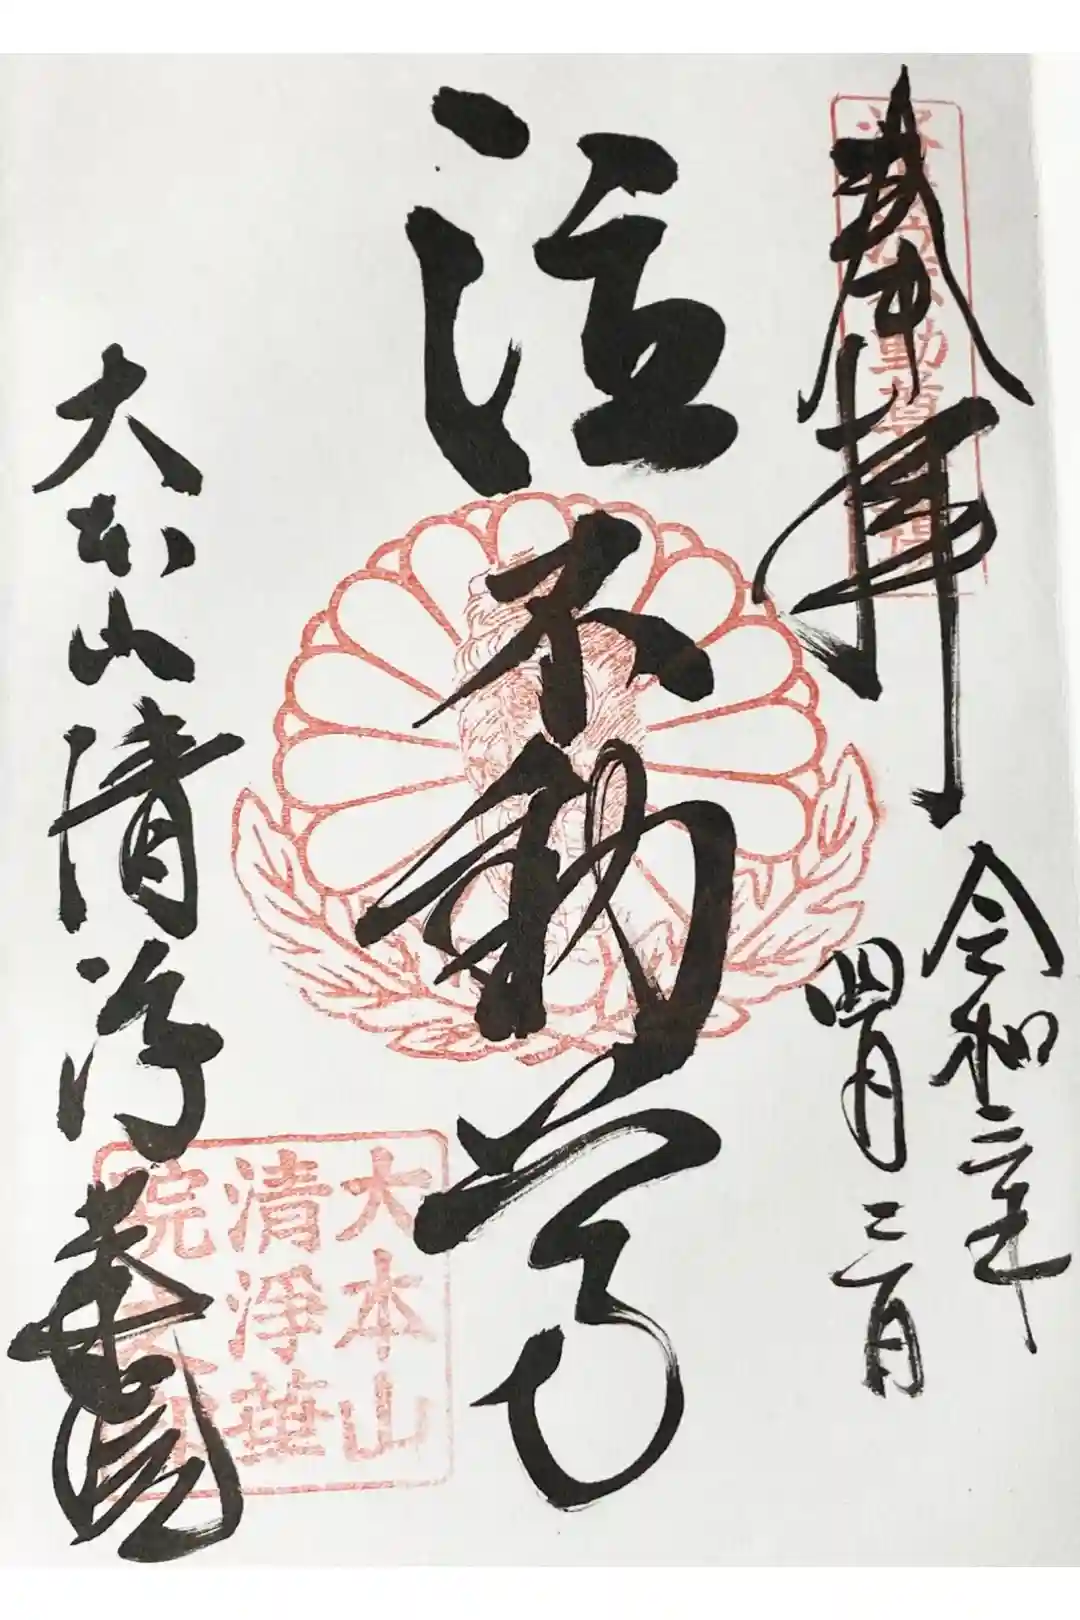 奉拝
令和二年
四月三日
泣不動尊
大本山清浄華院
大本山
清浄華
院